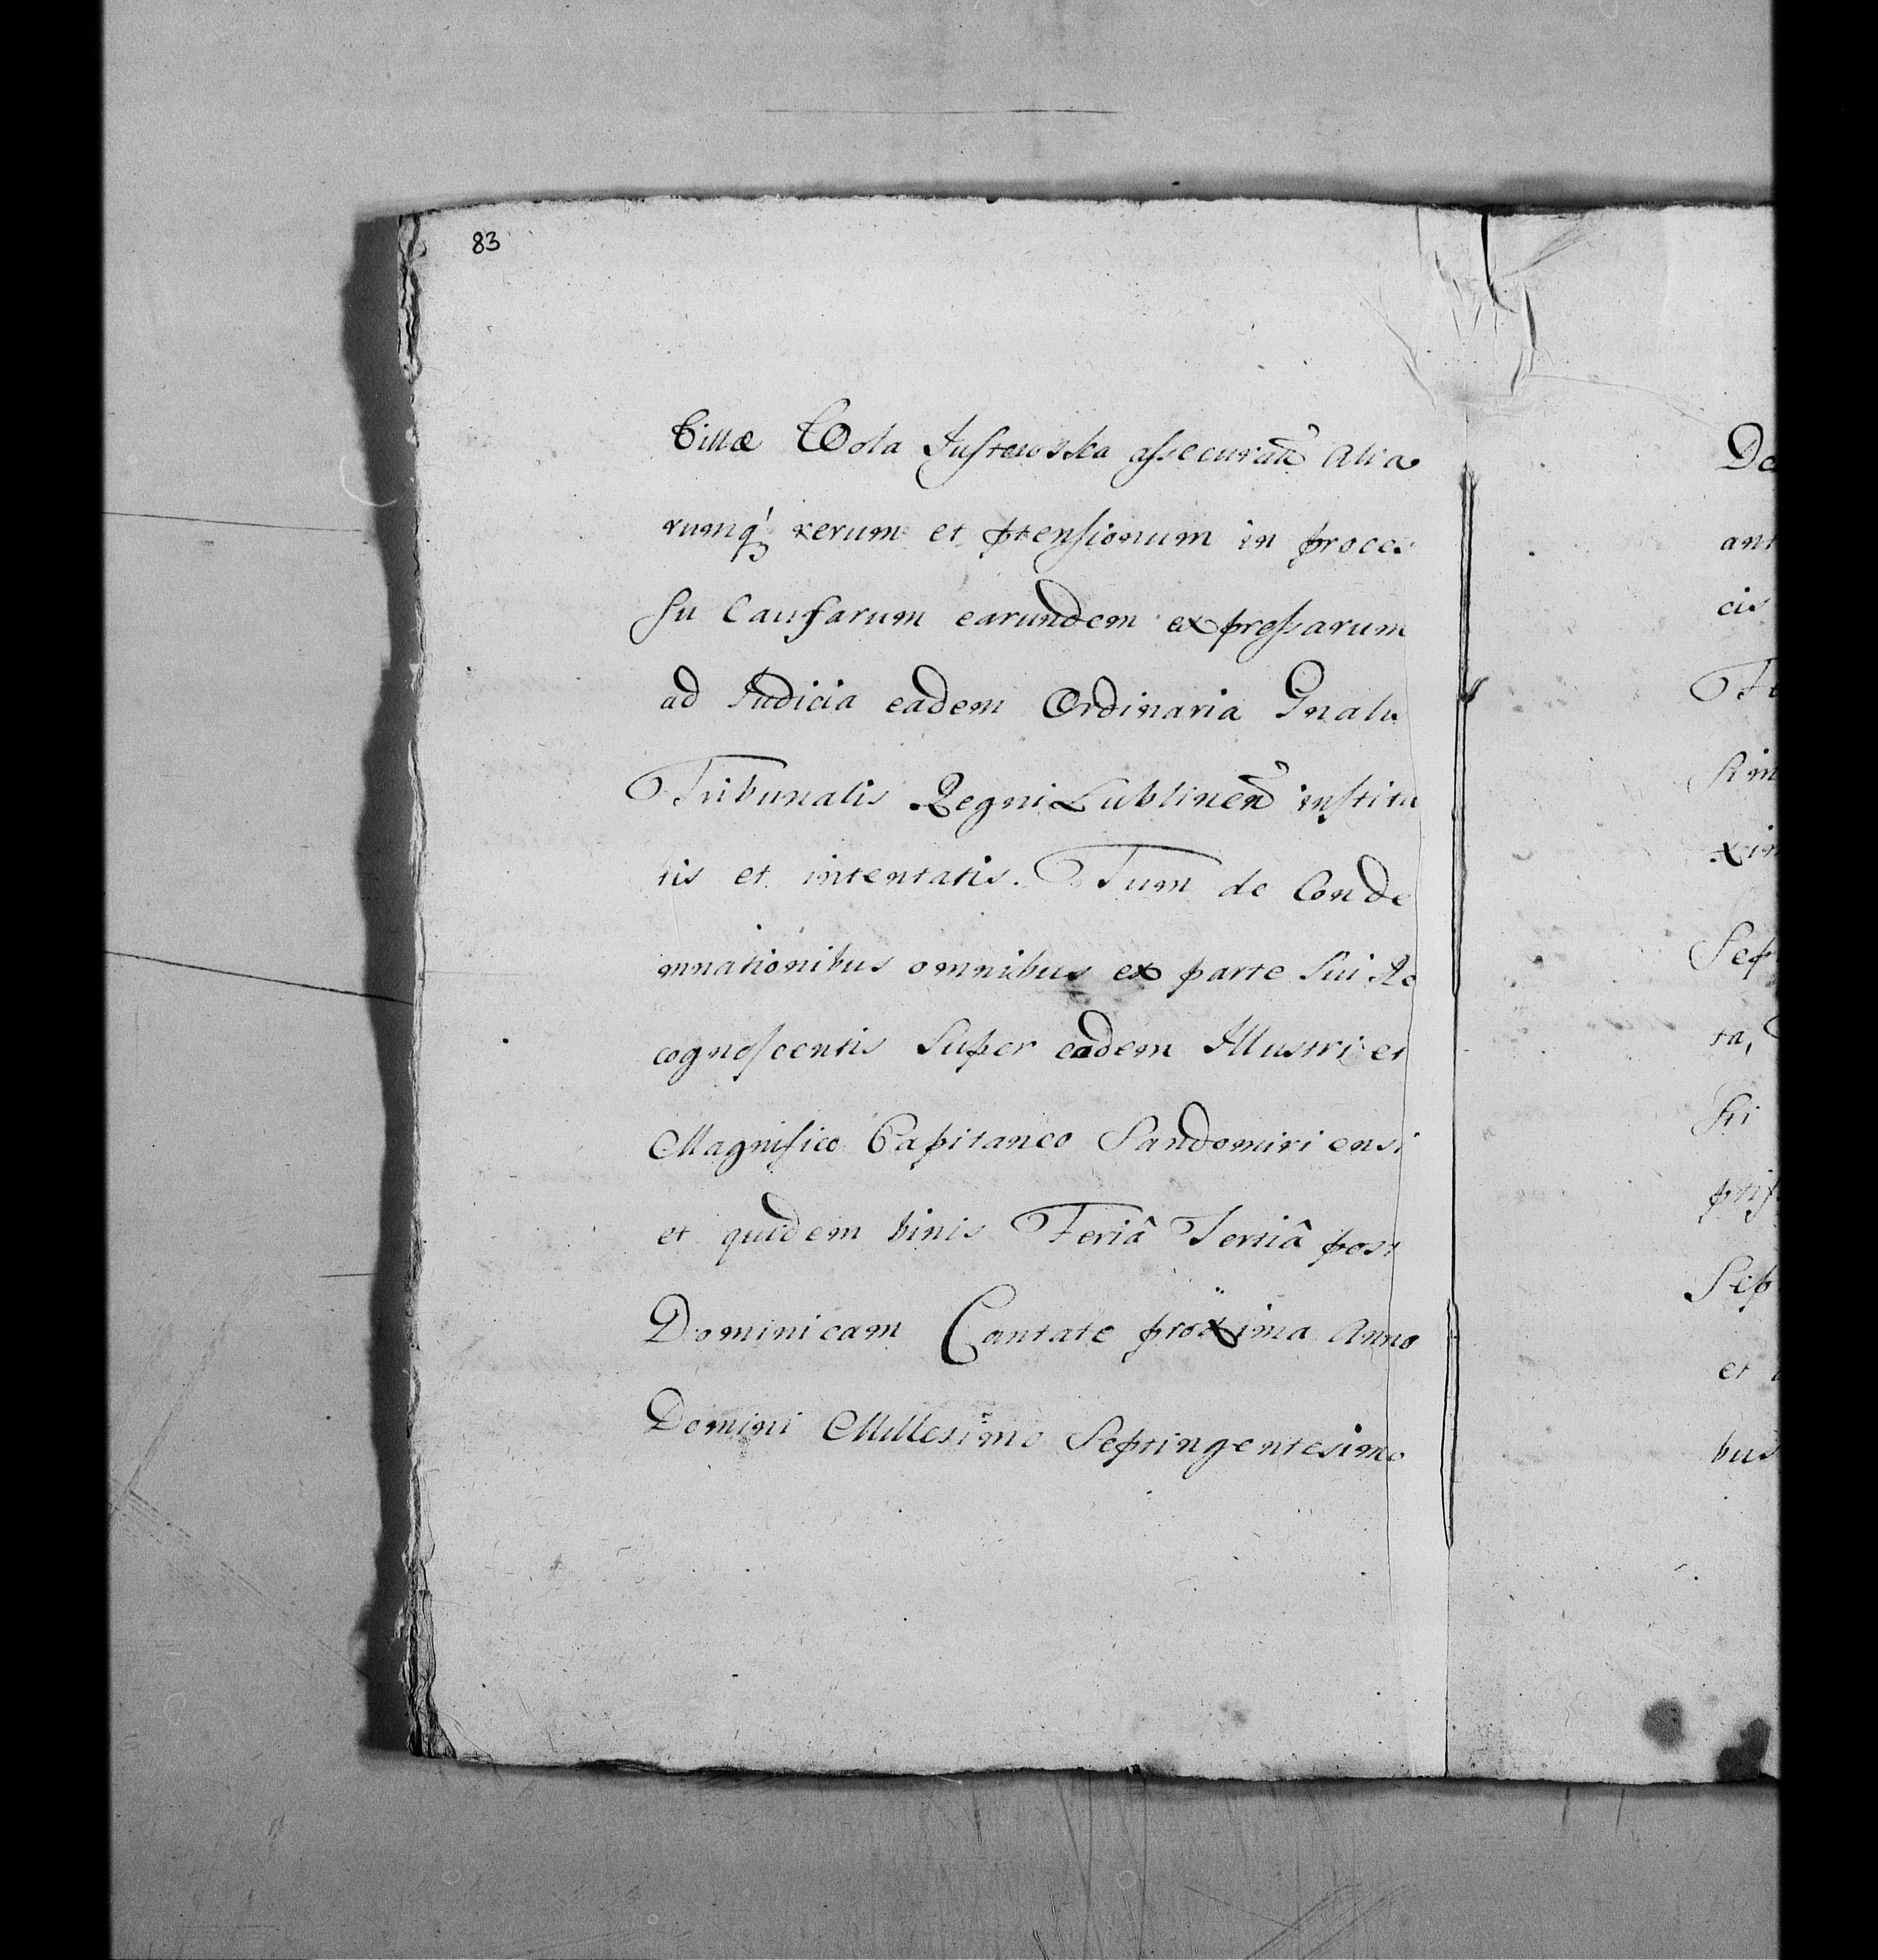 83
Villæ Wola Justowska assecurań Alia
rumq́ rerum et ptensionum in proces
su Causarum earundem expressarum
ad Judicia eadem Ordinaria Gnalis
Tribunalis Regni Lublineń institu
tis et intentatis. Tum de Conde
mnationibus omnibus ex parte Sui Re
cognoscentis Super eodem Illustri et
Magnifico Capitaneo Sandomiriensi
et quidem binis Feriâ Tertiâ post
Dominicam Cantate proxima Anno
Domini Millesimo Septingentesimo
De
ant
cis
Fe
sim
xim
Sep
ta,
Sti
Sep
et
bus